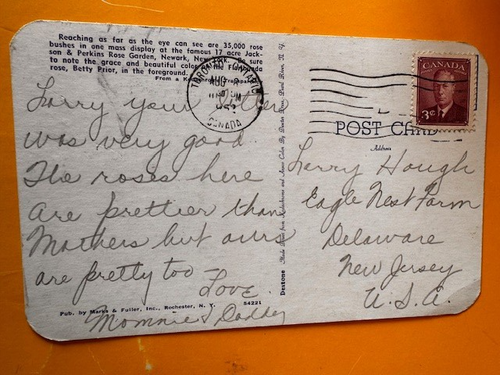 Reaching as far as the eye can see are 35,000 rose
bushes in one mass display at the famous 17 acre Jack-
son & Perkins Rose Garden, Newark, New York. Be sure
to note the grace and beautiful color of the Floribunda
rose, Betty Prior, in the foreground.
From a
TORONTO ONTARIO
AUG 2
CANADA
CANADA
3¢
POST CARD
Address
Larry your
was very good
The roses here
are prettier than
Mothers but ours
are pretty too
Love
Mommie & Daddy
Larry Hough
Eagle Nest Farm
Delaware
New Jersey
U.S.A.
Pub. by Manks & Fuller, Inc., Rochester, N. Y.
54221
Dextone
Made Direct from Kodachrome and Ansco Color By Dexter Press, Pearl River, N. Y.